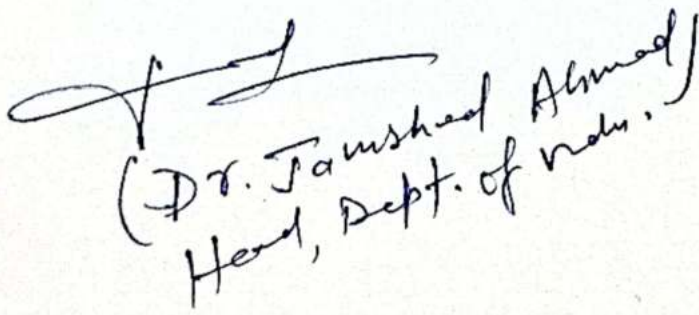 (Dr. Jamshad Ahmad)
Head, Dept. of Urdu.